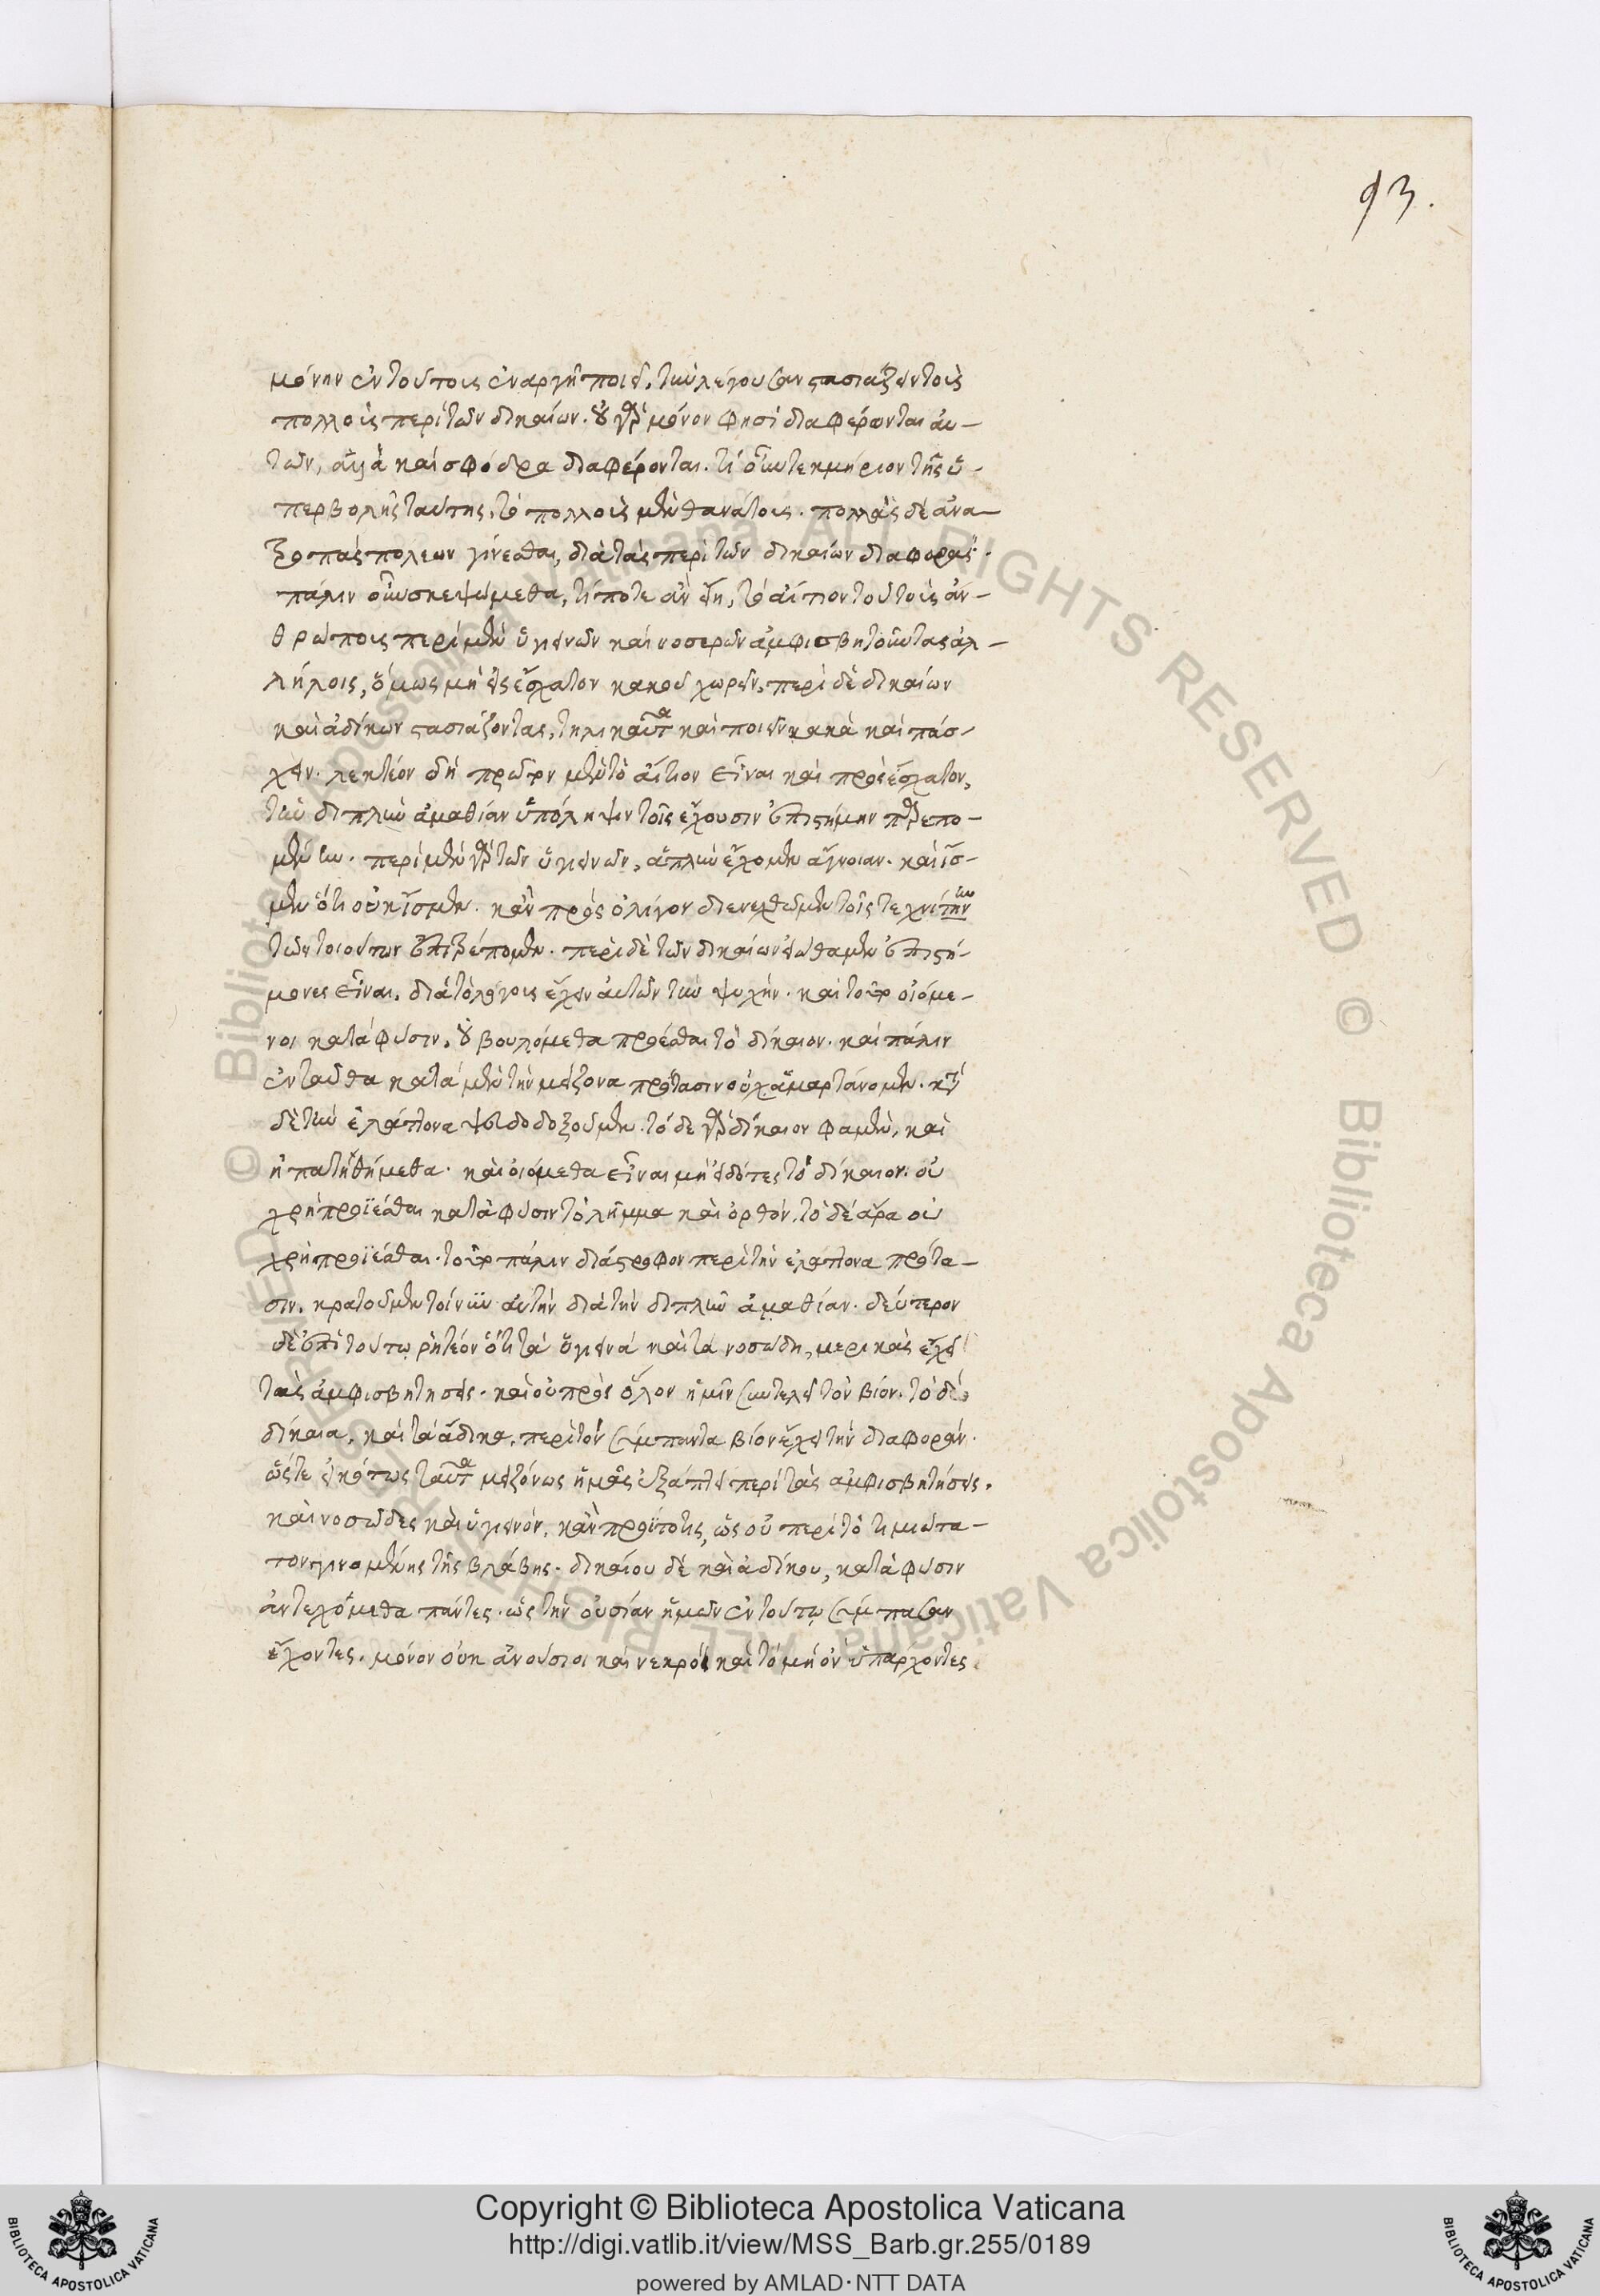 93.
μόνην ἐν τούτοις ἐναργῆ ποιεῖ, τὴν λέγουσαν στασιάζειν τοὺς
πολλοὺς περὶ τῶν δικαίων. οὐ γὰρ μόνον φησὶ διαφέρονται αυ-
τῶν, ἀλλὰ καὶ σφόδρα διαφέρονται. τί οὖν τεκμήριον τῆς ὑ-
περβολῆς ταύτης, τὸ πολλοὺς μὲν θανάτοις. πολλὰς δὲ ἀνα-
τροπὰς πόλεων γίνεσθαι, διὰ τὰς περὶ τῶν δικαίων διαφοράς.
πάλιν οὖν σκεψώμεθα, τί ποτε ἂν εἴη, τὸ αἴτιον τοῦ τοὺς ἀν-
θρώποις περὶ μὲν ὑγιεινῶν καὶ νοσερῶν ἀμφισβητοῦντας ἀλ-
λήλοις, ὅμως μὴ εἰς ἔσχατον κακοῦ χωρεῖν, περὶ δὲ δικαίων
καὶ ἀδίκων στασιάζοντας, τηλικαῦτα καὶ ποιεῖν κακὰ καὶ πάσ-
χειν. λεκτέον δὴ πρῶτον μὲν τὸ αἴτιον εἶναι καὶ πρὸς ἔσχατον,
τὴν διπλῆν ἀμαθίαν ὑπόληψιν τοῖς ἔχουσιν ἐπιστήμην παρεπο-
μένην. περὶ μὲν γὰρ τῶν ὑγιεινῶν, ἁπλῆν ἔχομεν ἄγνοιαν. καὶ ἴσ-
μεν ὅτι οὐκ ἴσμεν. κἂν πρὸς ὀλίγον διενεχθῶμεν τοῖς τεχνίτην
τῶν τοιούτων ἐπιτρέπομεν. περὶ δὲ τῶν δικαίων εἰώθαμεν ἐπιστή-
μονες εἶναι, διὰ τὸ λόγοις ἔχειν αὐτῶν τὴν ψυχήν. καὶ τοῦτο οἰόμε-
νοι κατὰ φύσιν, οὐ βουλόμεθα προέσθαι τὸ δίκαιον. καὶ πάλιν
ἐνταῦθα κατὰ μὲν τὴν μείζονα πρότασιν οὐχ ἁμαρτάνομεν. κατὰ
δὲ τὴν ἐλάττονα ψευδοδοξοῦμεν. τό δε γὰρ δίκαιον φαμὲν, καὶ
ἠπατήθημεθα. καὶ οἰόμεθα εἶναι μὴ εἰδότες τὸ δίκαιον. οὐ
χρὴ προΐεσθαι κατὰ φύσιν τὸ λῆμμα καὶ ὀρθόν. τὸ δὲ ἄρα οὐ
χρὴ προΐεσθαι. τοῦτο πάλιν διάστροφον περὶ τὴν ἐλάττονα πρότα-
σιν. κρατοῦμεν τοίνυν αὐτὴν διὰ τὴν διπλῆν ἀμαθίαν. δεύτερον
δὲ ἐπὶ τούτῳ ῥητέον ὅτι τὰ ὑγιεινὰ καὶ τὰ νοσώδη, μερικὰς ἔχει
τὰς ἀμφισβητησεις. καὶ οὐ πρὸς ὅλον ἡμῖν συντελεῖ τὸν βίον. τὸ δὲ
δίκαια, καὶ τὰ ἄδικα, περὶ τὸν σύμπαντα βίον ἔχει τὴν διαφοράν.
ὥστε εἰκότως ταῦτα μειζόνως ἡμᾶς ἐξάπτει περὶ τὰς ἀμφισβητήσεις.
καὶ νοσῶδες καὶ ὑγιεινόν, κἂν προῗτό τις, ὡς οὐ περὶ τὸ τιμιώτα-
τον γινομένης τῆς βλάβης. δικαίου δὲ καὶ ἀδίκου, κατὰ φύσιν
ἀντεχόμεθα πάντες. ὡς τὴν οὐσίαν ἡμῶν ἐν τούτῳ σύμπασαν
ἔχοντες. μόνον οὐκ ἀνούσιοι καὶ νεκροὶ καὶ τὸ μὴ ὂν ὑπάρχοντες
Copyright © Biblioteca Apostolica Vaticana
http://digi.vatlib.it/view/MSS_Barb.gr.255/0189
powered by AMLAD·NTT DATA
BIBLIOTECA APOSTOLICA VATICANA
BIBLIOTECA APOSTOLICA VATICANA